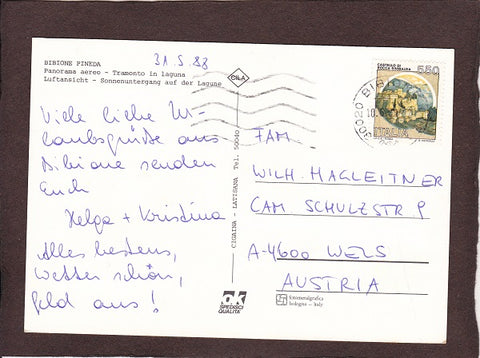 BIBIONE PINEDA
Panorama aereo - Tramonto in laguna
Luftansicht - Sonnenuntergang auf der Lagune
31 5. 88
CIGAINA - LATISANA Tel. 50040
550
ITALIA
30020 BIB
10.
Viele liebe Ur-
laubsgrüße aus
Bibione senden
Euch
Helga + Kristina
Alles bestens,
Wetter schön,
Geld aus!
FAM.
WILH. HAGLEITNER
CAM SCHULZSTR 9
A-4600 WELS
AUSTRIA
ok
SPEDISCI
QUALITA'
fotometalgrafica
bologna - italy